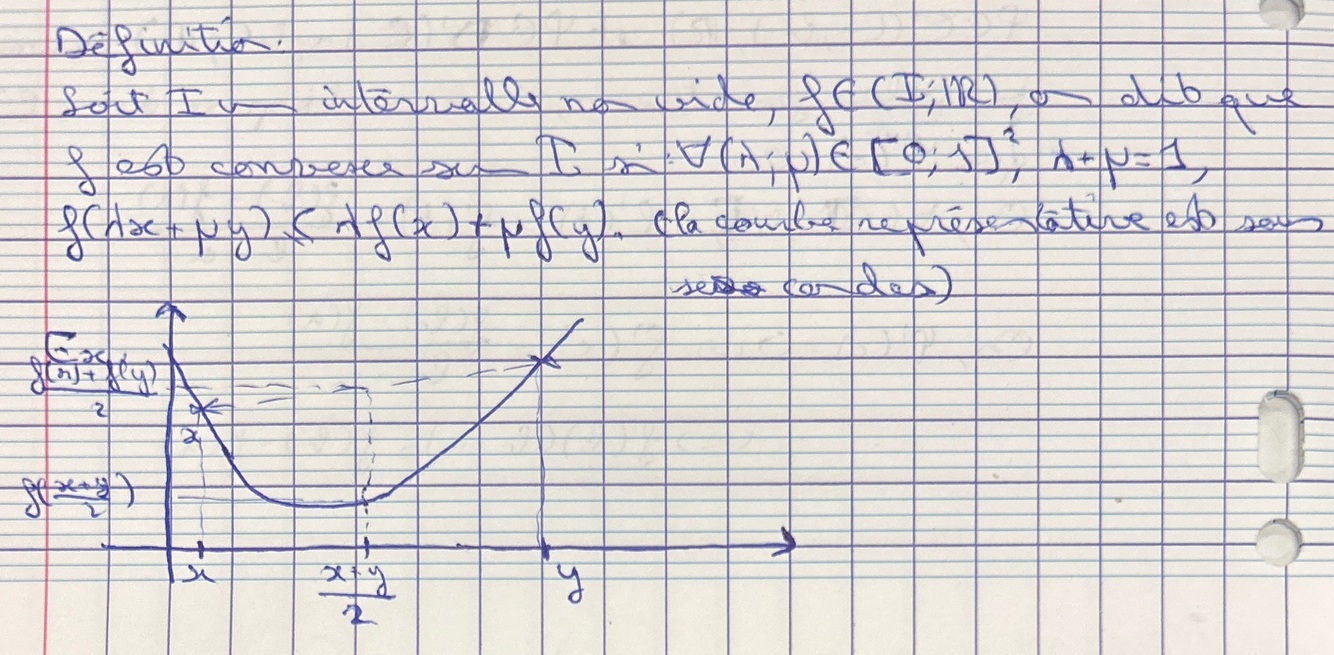 Définition:
Soit I un intervalle non vide, f ∈ (I; IR), on dit que
f est convexe sur I si ∀(λ; μ) ∈ [0; 1]², λ + μ = 1,
f(λx + μy) ≤ λf(x) + μf(y). (la courbe représentative est sous
ses cordes)
f(x) + f(y)
2
x
f(x+y
2)
x
x+y
2
y